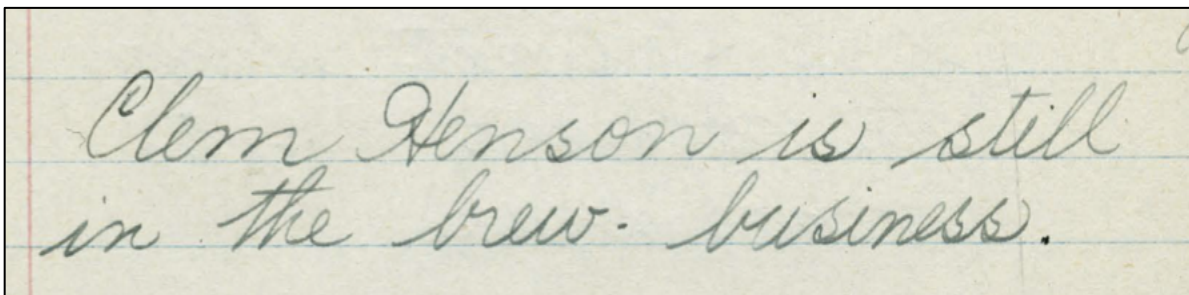 Clem Henson is still
in the brew. business.